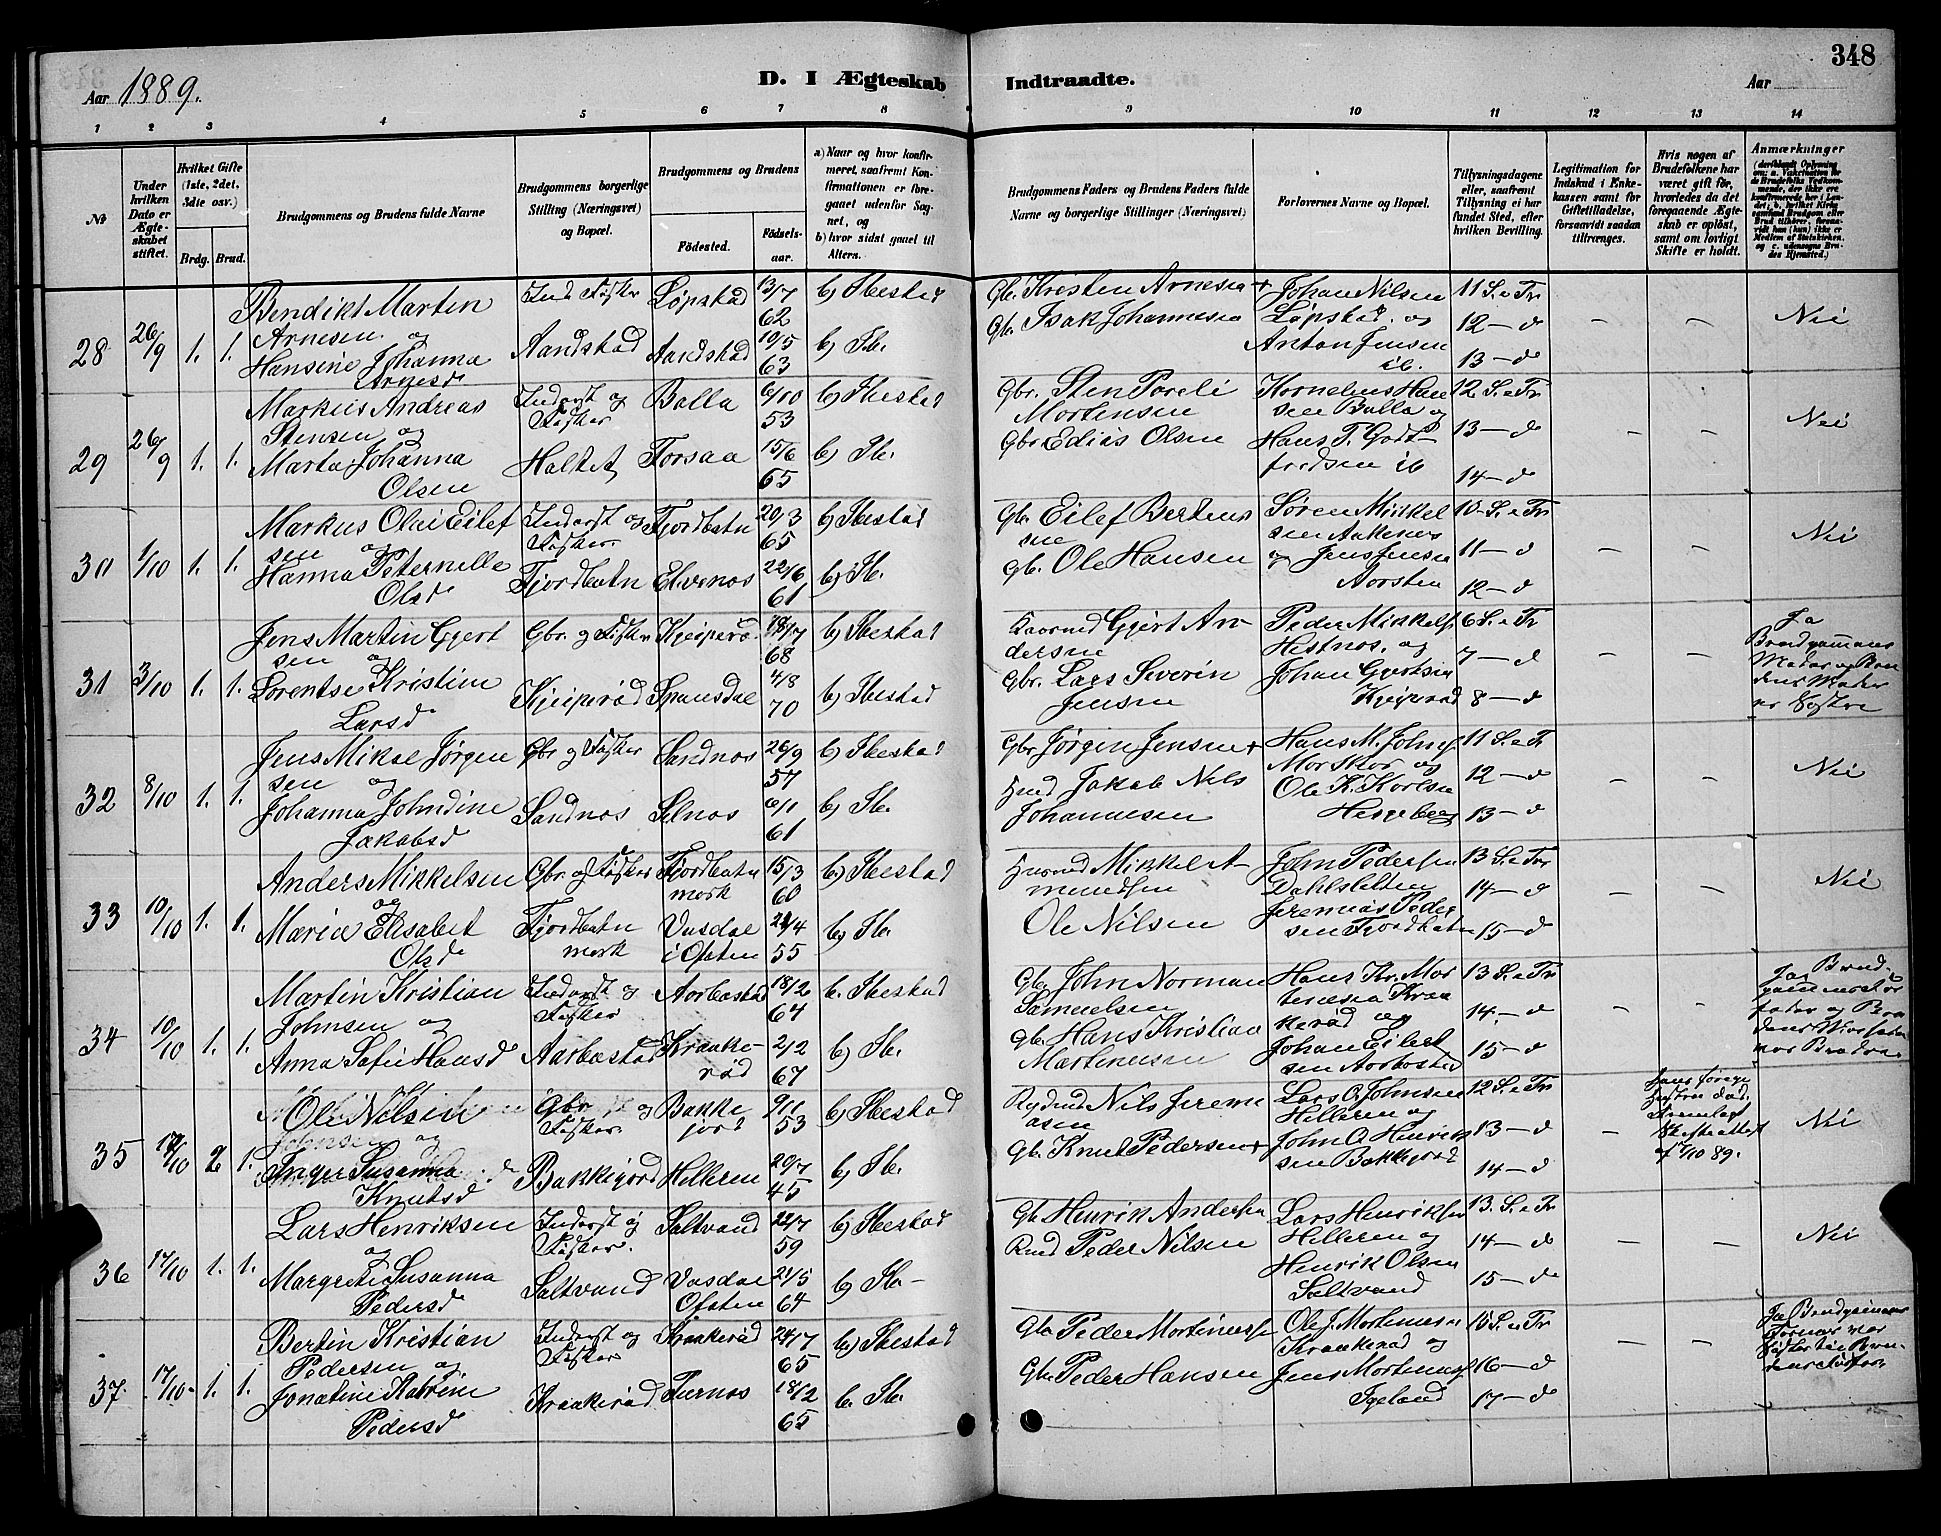 348
Aar 1889.
D. I Ægteskab Indtraadte.
Aar
1 2 3 4 5 6 7 8 9 10 11 12 13 14
No
Under hvilken Dato er Ægteskabet stiftet.
Hvilket Gifte (1ste, 2det, 3die osv.)
Brdg. Brud.
Brudgommens og Brudens fulde Navne
Brudgommens borgerlige Stilling (Næringsvei) og Bopæl.
Brudgommens og Brudens
Födested.
Födselsaar.
a) Naar og hvor konfirmeret, saafremt Konfirmationen er foregaaet udenfor Sognet, og
b) hvor sidst gaaet til Alters.
Brudgommens Faders og Brudens Faders fulde Navne og borgerlige Stillinger (Næringsvei)
Forlovernes Navne og Bopæl.
Tillysningsdagene eller, saafremt Tillysning ei har fundet Sted, efter hvilken Bevilling.
Legitimation for Indskud i Enkekassen samt for Giftetilladelse, forsaavidt saadan tiltrænges.
Hvis nogen af Brudefolkene har været gift før, hvorledes da det foregaaende Ægteskab er oplöst, samt om lovligt Skifte er holdt.
Anmærkninger
28 26/9 1. 1.
Bendikt Martin Arnesen og
Hansine Johanna Arnesd
Ind Fisker
Aandstad
Løpstad 13/7 62
Aandstad 19/5 63
b) Ibestad
b) Ib.
Gbr. Kristen Arnesen +
Gbr. Isak Johannesen
Johan Nilsen Løpstad. og
Anton Jensen ib.
11 S. e Tr
12 — d
13 — d
— —
Nei
29 26/9 1. 1.
Markus Andreas Stensen og
Marta Johanna Olsen
Inderst og Fisker
Haltet
Balla 6/10 53
Forsaa 15/6 65
b) Ibestad
b) Ib.
Gbr. Sten Poreli Mortensen
Gbr Edias Olsen
Kornelius Hansen Balla og
Hans P. Godtfredsen ib
12 S. e Tr
13 — d
14 — d
— —
Nei
30 1/10 1. 1.
Markus Olai Eilefsen og
Hanna Peternille Olsd
Inderst og Fisker.
Fjordbotn
Fjordbotn 20/3 65
Elvenos 22/6 61
b) Ibestad
b) Ib.
Gbr. Eilef Bertensen
Gb. Ole Hansen
Søren Mikkelsen Aakenes
og Jens Jensen Aorsten
10 S. e Tr
11 — d
12 — d
— —
Nei
31 3/10 1. 1.
Jens Martin Gjertsen og
Lorentse Kristine Larsd
Gbr. og Fisker
Kjeiperød
Kjeiperød 18/7 68
Spansdal 4/8 70
b) Ibestad
b) Ibestad
Gjert Andersen
Gbr. Lars Severin Jensen
Peder Mikkelsen Hestnos. og
Johan Gjertsen Kjeiperød
6 S. e Tr
7 — d
8 — d
— —
Ja
Brudgommens Moder og Brudens Moder er Søstre
32 8/10 1. 1.
Jens Mikal Jørgensen og
Johanna Johndine Jakobsd
Gbr og Fisker
Sandnos
Sandnos 26/9 57
Selnos 6/1 61
b) Ibestad
b) Ib.
Gbr. Jørgen Jensen +
Jakob Nils Johannesen
Hans M. Johnsen og
Ole K. Karlsen
11 S. e Tr
12 — d
13 — d
— —
Nei
33 10/10 1. 1.
Anders Mikkelsen og
Maria Elisabet Olsd
Gbr og Fisker
Fjordbotn mark
Fjordbotn mark 15/3 60
Vasdal i Ofoten 24/4 55
b) Ibestad
b) Ib.
Husmd Mikkel Amundsen
Ole Nilsen
John Pedersen Dahlsletten
Jeremias Pedersen Fjordbotn
13 S. e Tr
14 — d
15 — d
— —
Nei
34 10/10 1. 1.
Martin Kristian Johnsen og
Anna Sofie Hansd
Inderst og Fisker
Aarbostad
Aorbostad 18/2 64
Kraakerød 2/2 67
b. Ibestad
b) Ib.
Gbr John Norman Samuelsen
Gb. Hans Kristian Martinusen
Hans Kr. Martinusen Kraakerød og
Johan Eilertsen Aorbostad
13 S. e Tr
14. — d
15 — d
— —
35 17/10 2 1.
Ole Nilsen
og
Inger Susanna Knutsd
Gbr og Fisker
Bakkejord
Bakkejord 9/1 53
Helleren 20/7 45
b) Ibestad
b) Ib.
Nils Jeremiasen
Gb. Knut Pedersen +
Lars O Johnsen Helleren og
John O Henriksen Bakkejord
12 S. e Tr
13 — d
14 — d
—
Hans forrige Hustru død.
Skifteattest
af 7/10 89.
Nei
36 17/10 1. 1.
Lars Henriksen og
Margrete Susanna Pedersd
Inderst og Fisker.
Saltvand
Saltvand 22/7 59
Vasdal Ofoten 21/5 64
b) Ibestad
b) Ib —
Gb. Henrik Andersen
Peder Nilsen
Lars Henriksen Helleren og
Henrik Olsen Saltvand
13. S. e Tr
14 — d
15 — d
— —
Nei
37. 17/10 1. 1.
Bertin Kristian Pedersen og
Jonatine Katrine Pedersd
Inderst og Fisker
Kraakerød
Kraakerød 24/7 65
Furnos 18/2 65
b) Ibestad
b. Ib.
Gb. Peder Mortinussen
Gb. Peder Hansen
Ole J. Mortinusen Kraakerød og
Jens Mortinusen Igeland
15 S. e Tr
16 — d
17 — d
— —